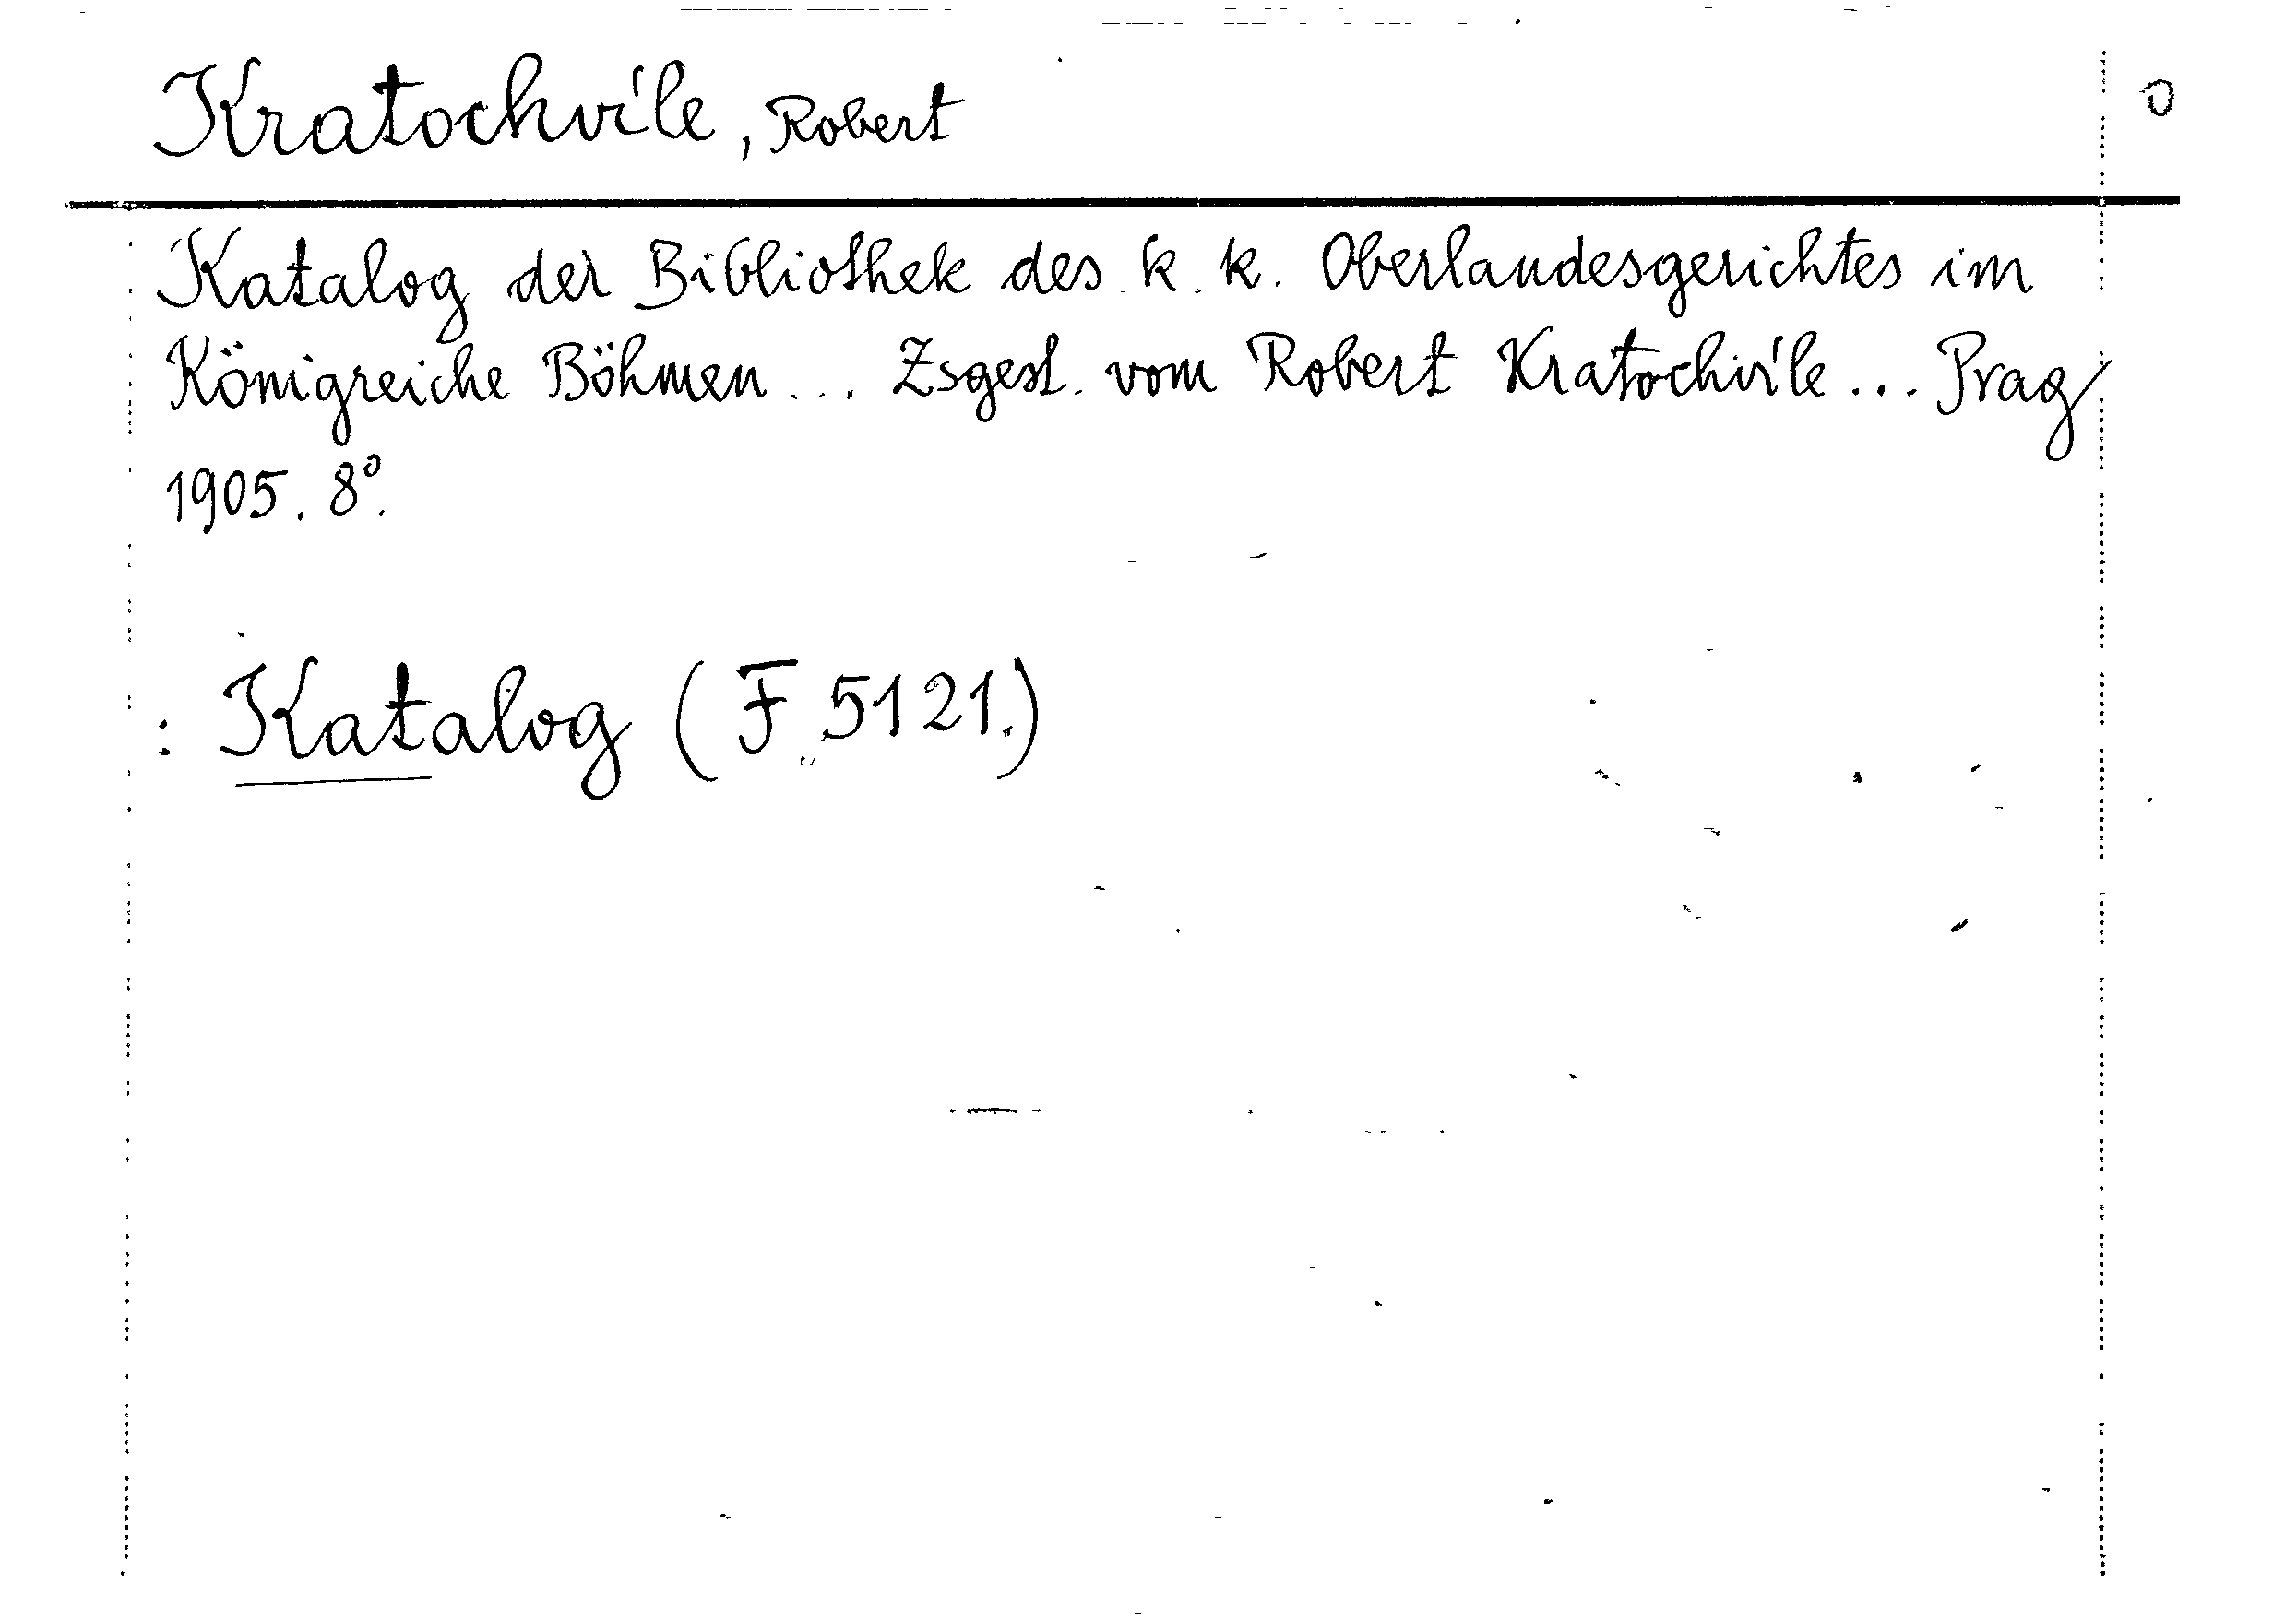 Kratochvíle, Robert 0
Katalog der Bibliothek des k. k. Oberlandesgerichtes im
Königreiche Böhmen ... Zsgest. vom Robert Kratochvíle ... Prag
1905. 8°.
: Katalog (F 5121.)